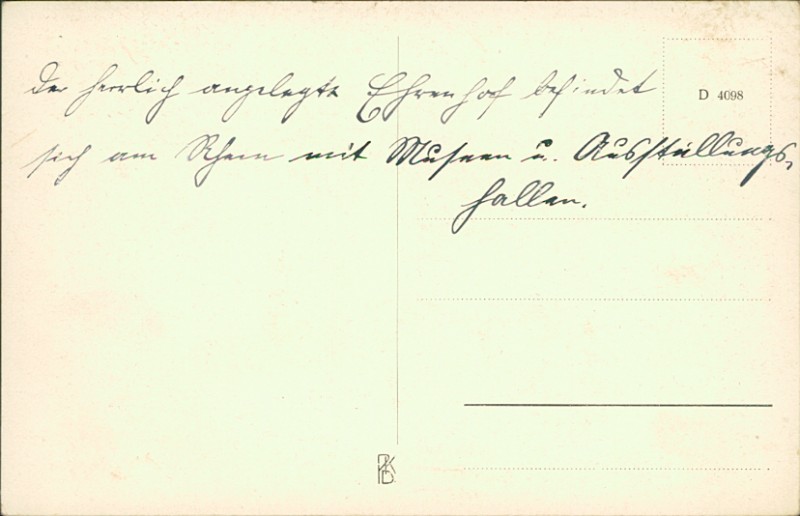 Der herrlich angelegte Ehrenhof befindet
D 4098
sich am Rhein mit Museen u. Ausstellungs-
hallen.
PKD